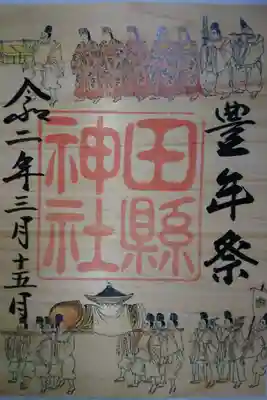 豊年祭
田縣
神社
令二年三月十五日